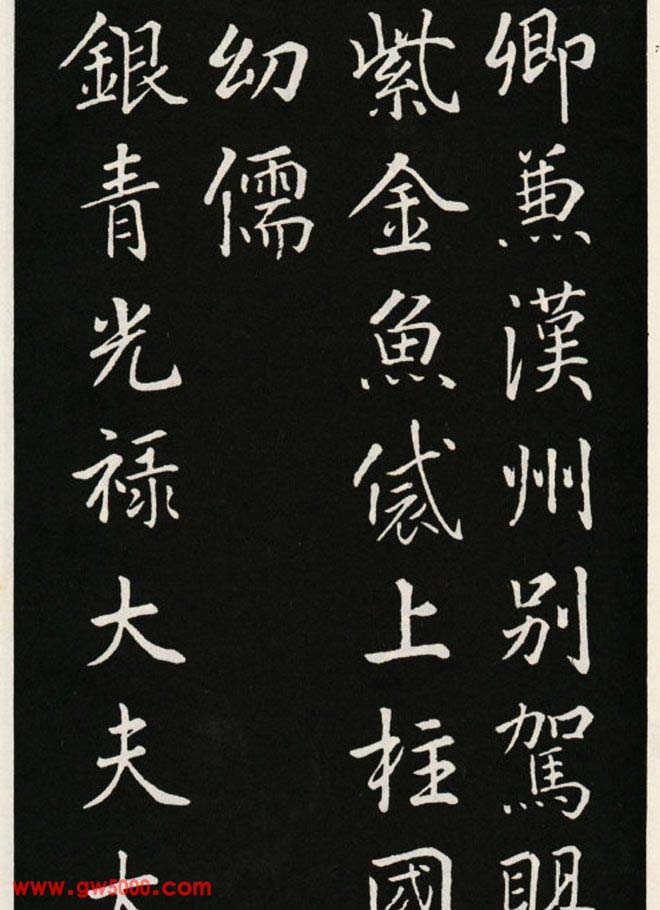 卿兼漢州別駕賜
紫金魚袋上柱國
幼儒
銀青光禄大夫大
www.gw5000.com